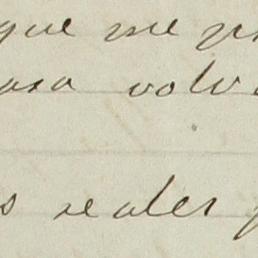 que me p
asa volv
s reales p